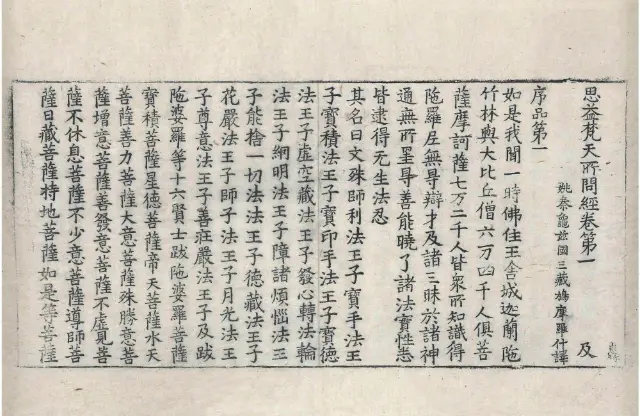 思益梵天所問經卷第一 及
姚秦龜玆國三藏鳩摩羅什譯
序品第一
如是我聞一時佛住王舍城迦蘭陁
竹林與大比丘僧六万四千人俱菩
薩摩訶薩七万二千人皆衆所知識得
陁羅尼無㝵辯才及諸三昧於諸神
通無所罣㝵善能曉了諸法實性悉
皆逮得无生法忍
其名曰文殊師利法王子寶手法王
子寶積法王子寶印手法王子寶德
法王子虛空藏法王子發心轉法輪
法王子網明法王子障諸煩惱法王
子能捨一切法法王子德藏法王子
花嚴法王子師子法王子月光法王
子尊意法王子善莊嚴法王子及跋
陁婆羅等十六賢士跋陁婆羅菩薩
寶積菩薩星德菩薩帝天菩薩水天
菩薩善力菩薩大意菩薩殊勝意菩
薩增意菩薩善發意菩薩不虛見菩
薩不休息菩薩不少意菩薩導師菩
薩日藏菩薩持地菩薩如是等菩薩